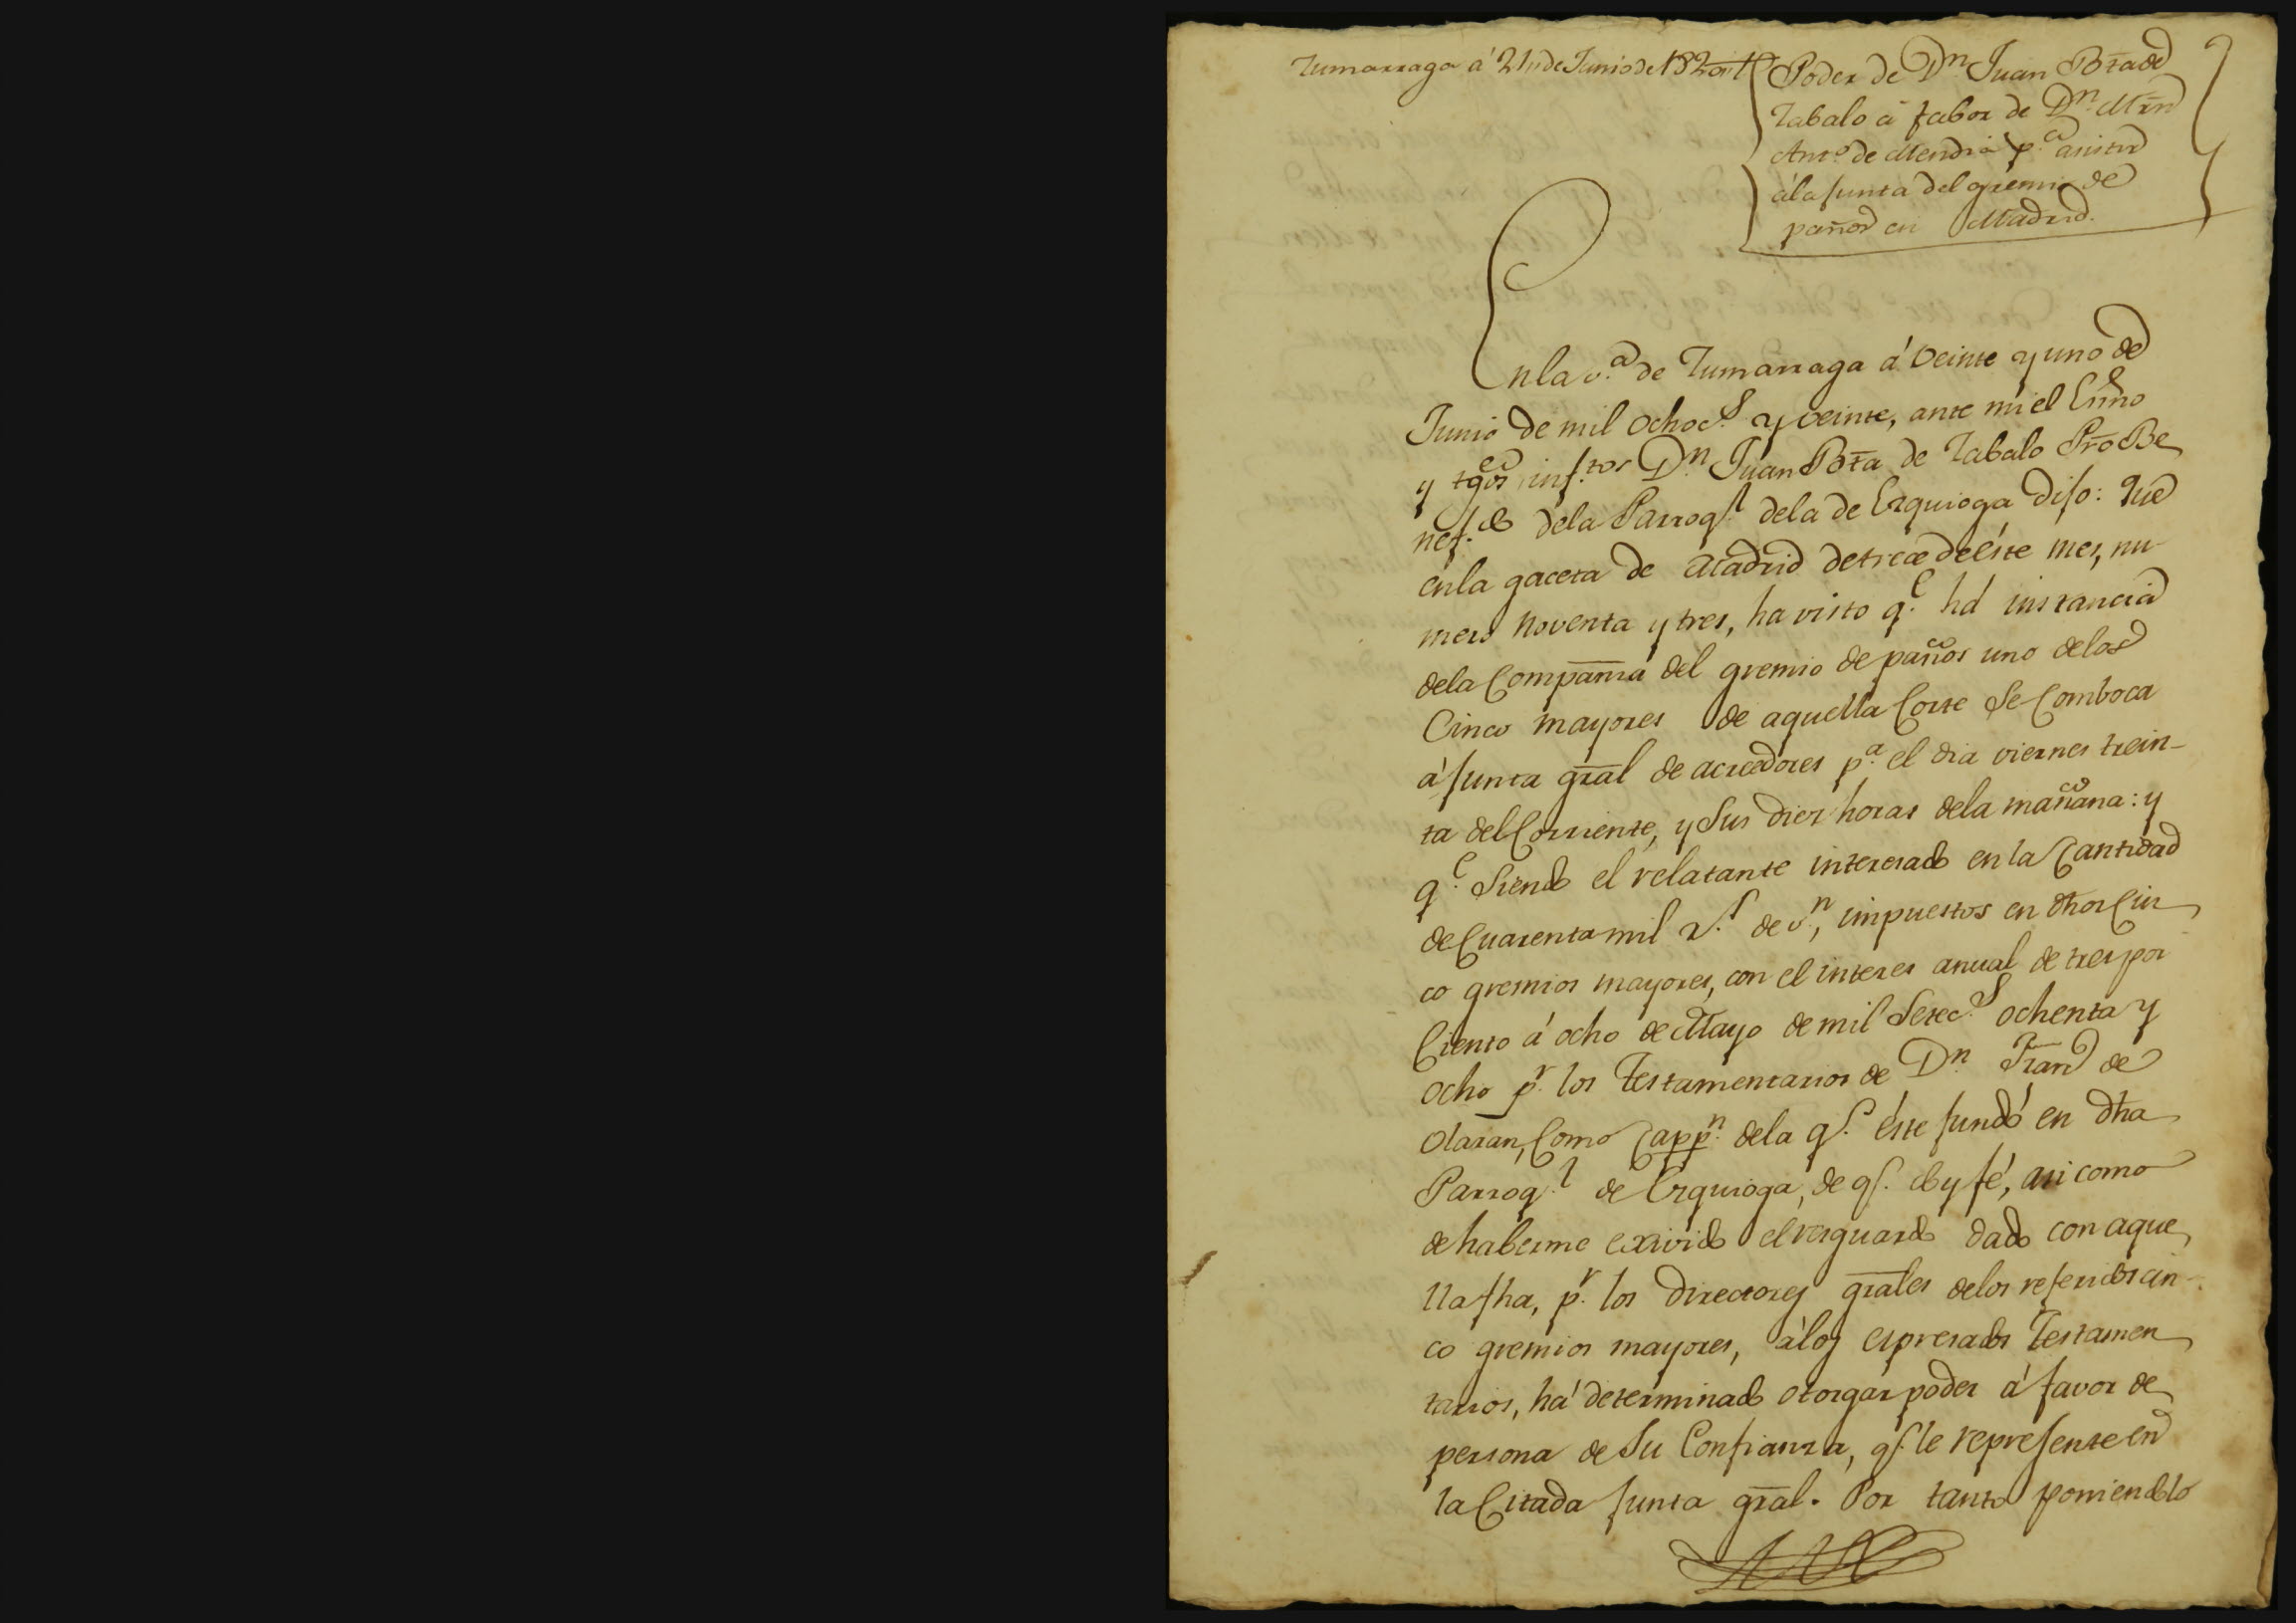 Zumarraga á 21,, de Junio de 1820
Poder de Dn. Juan Bta. de
Zabalo á fabor de Dn. Mrn.
Anto. de Mendia pa. asistir
á la junta del gremio de
paños en Madrid.
En la va. de Zumarraga á veinte y uno de
Junio de mil ochocs. y veinte, ante mi el Essno
y tgos infftos Dn. Juan Bta de Zabalo Pro Be
nefdo dela Parroql. dela de Ezquioga dijo: Que
en la gaceta de Madrid de trece de éste mes, nu-
mero noventa y tres, ha visto qe. há instancia
dela Compañia del gremio de paños uno delos
Cinco mayores de aquella Corte se Comboca
á junta gral de acreedores pa. el dia viernes trein-
ta del Corriente, y sus diez horas dela mañana: y
qe. siendo el relatante interesado en la Cantidad
de Cuarenta mil rs. de vn., impuestos en dhos Cin
co gremios mayores, con el interes anual de tres por
Ciento á ocho de Mayo de mil setecs. ochenta y
ocho pr. los Testamentarios de Dn. Fran de
Olaran, Como Cappn. dela qe. éste fundó en dha
Parroql. de Ezquioga, de qe. doy fé, asi como
de haberme exivido el resguardo dado con aque
lla fha, pr. los directores grales delos referidos cin-
co gremios mayores, á los espresados Testamen
tarios, há determinado otorgar poder á favor de
persona de su Confianza, qe. le represente en
la Citada junta gral. Por tanto poniendolo